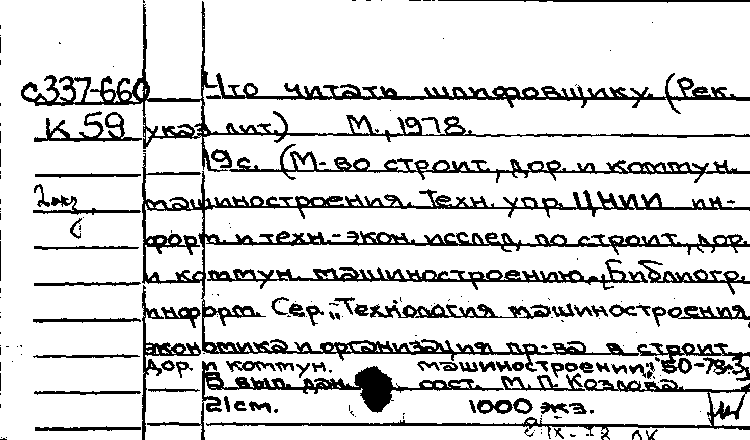 с337-660 Что читать шлифовщику. (Рек.
К 59 указ. лит.) М., 1978.
19 с. (М-во строит., дор. и коммун.
2 экз. машиностроения. Техн. упр. ЦНИИ ин-
форм. и техн.-экон. исслед. по строит., дор.
и коммун. машиностроению. Библиогр.
информ. Сер. „Технология машиностроения,
экономика и организация пр-ва в строит.,
дор. и коммун. машиностроении; 80-78-3)
В вып. дан. сост. М. П. Козлова.
21 см. 1000 экз.